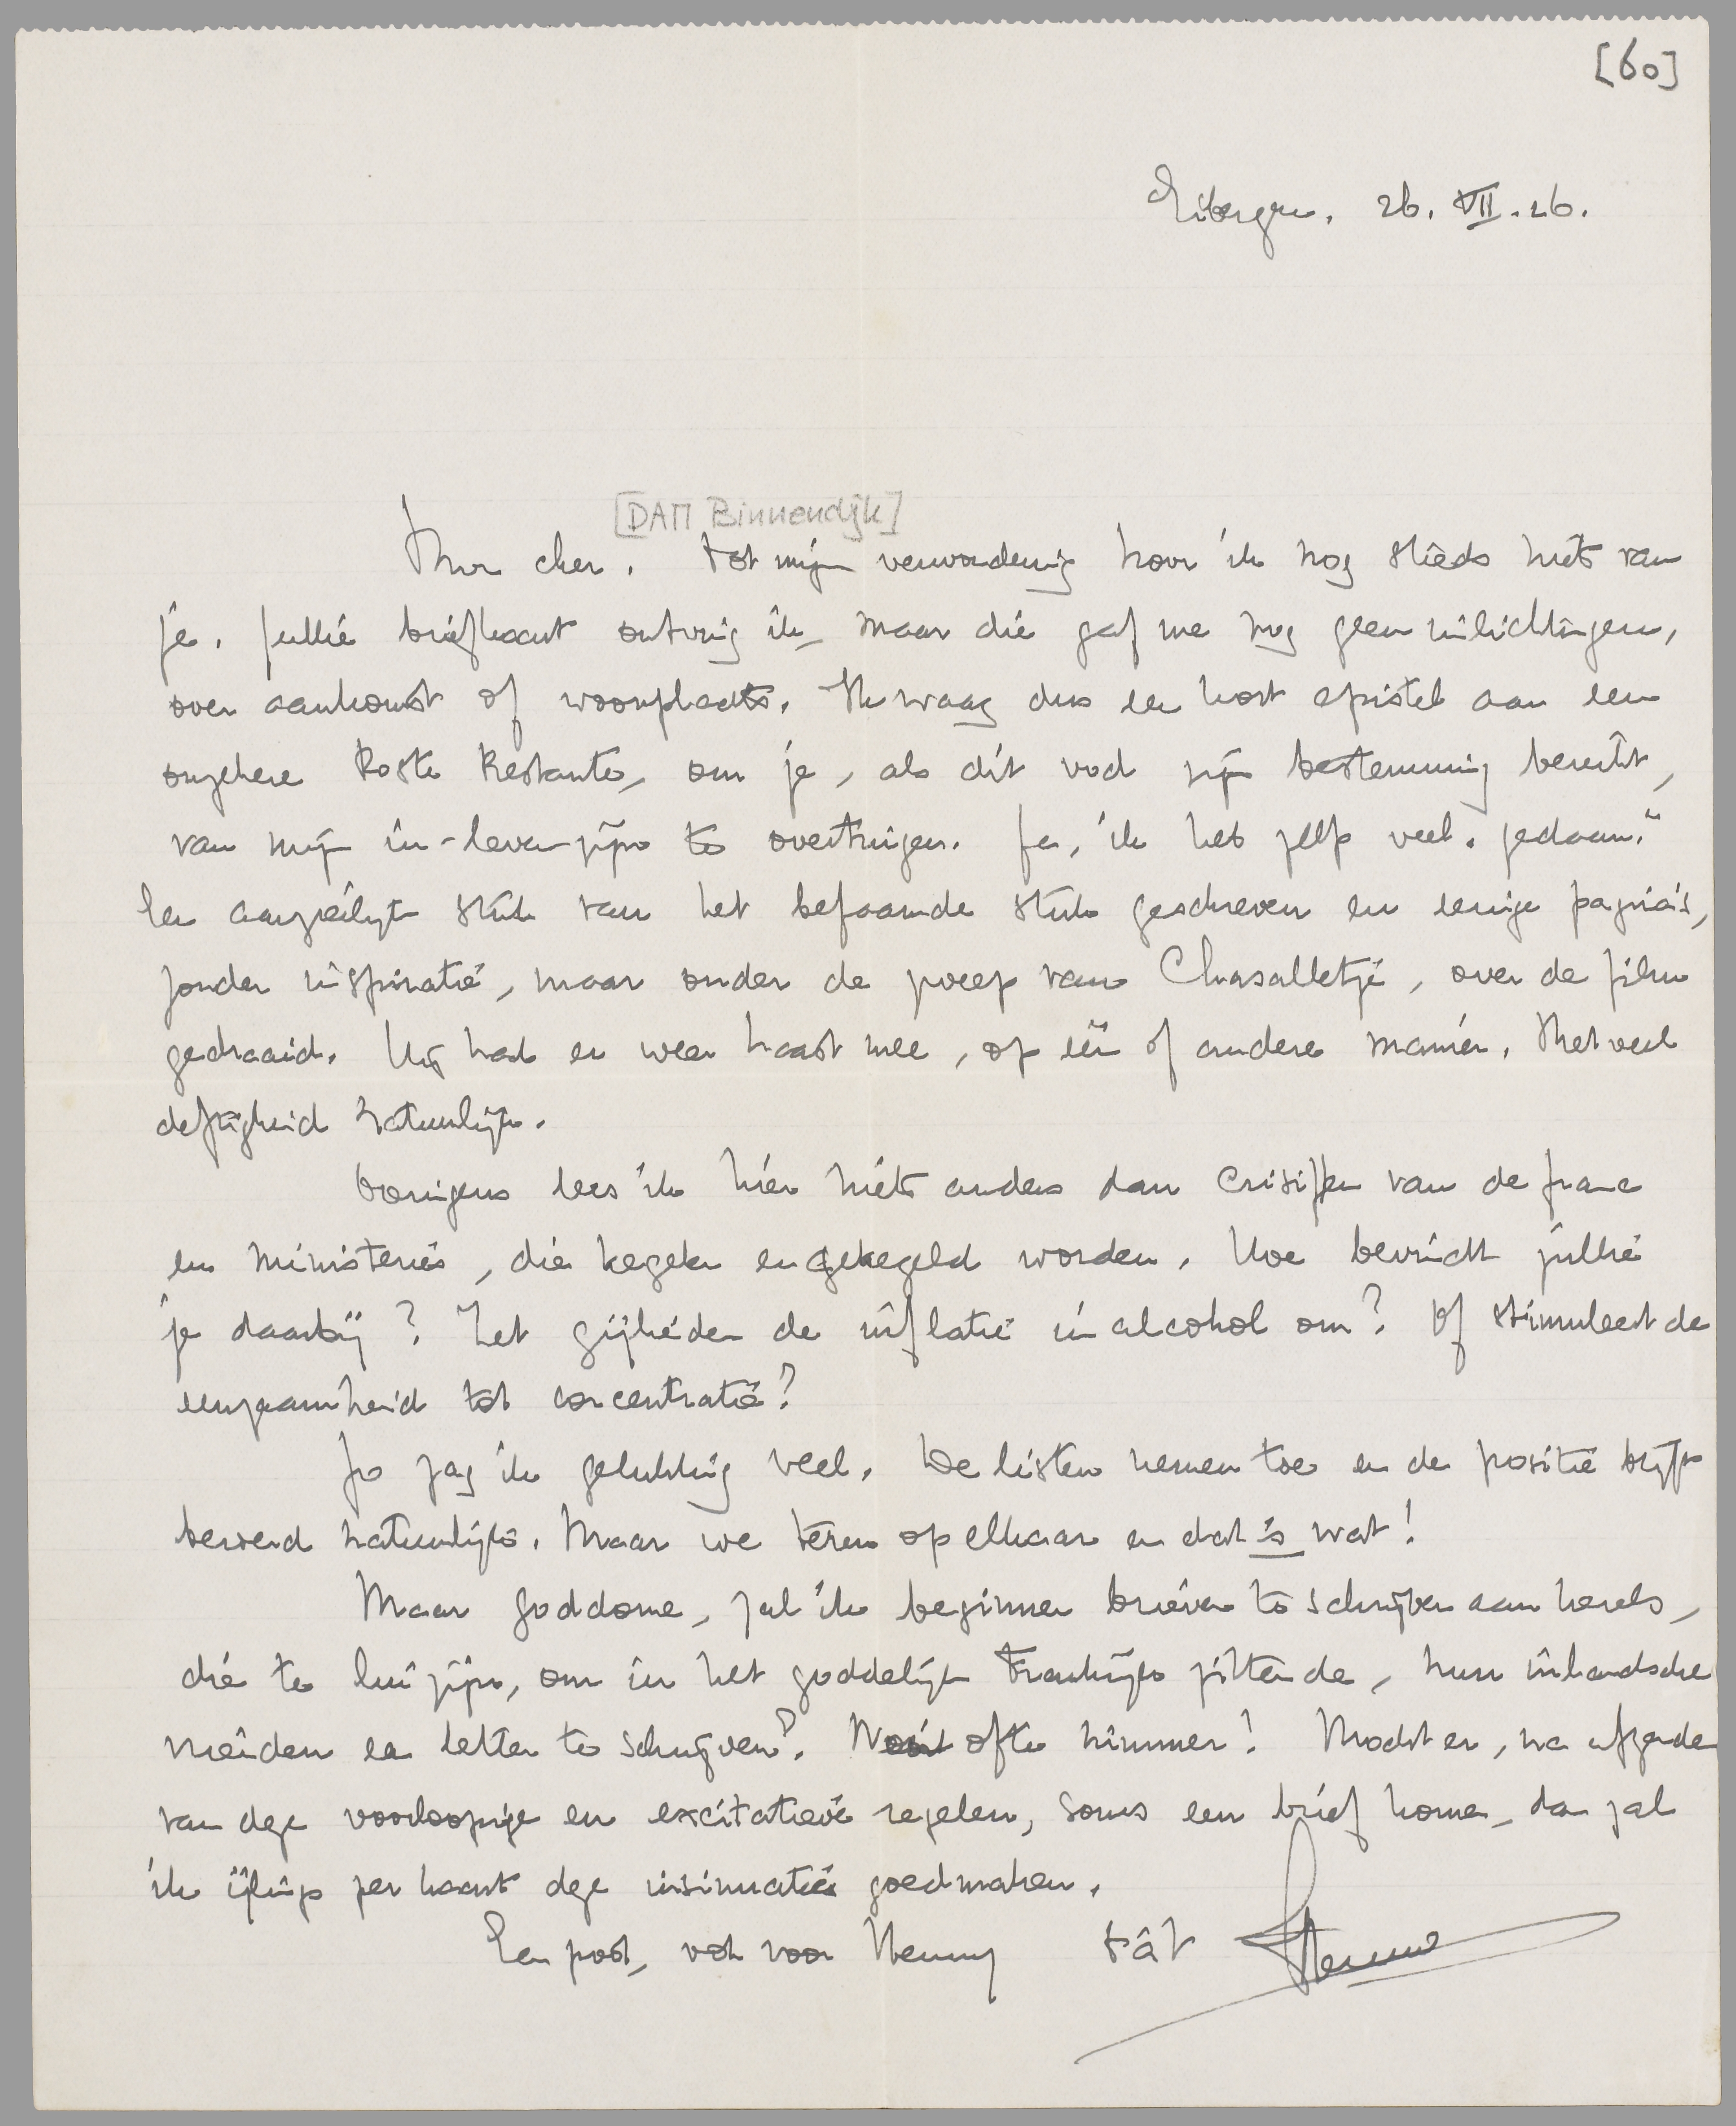 [60]
Eibergen. 26. VII. 26.
[DAM Binnendijk]
Mon cher. Tot mijn verwondering hoor ik nog steeds niets van
je. Jullie briefkaart ontving ik, maar die gaf me nog geen inlichtingen,
over aankomst of woonplaats. Ik waag dus een kort epistel aan een
onzekere Poste Restante, om je, als dit vod zijn bestemming bereikt,
van mijn in-leven-zijn te overtuigen. Ja, ik heb zelfs veel „gedaan."
Een aanzienlijk stuk van het befaamde stuk geschreven en eenige pagina's,
zonder inspiratie, maar onder de zweep van Chasalletje, over de film
gedraaid. Hij had er weer haast mee, op een of andere manier. Met veel
deftigheid natuurlijk.
Overigens lees ik hier niets anders dan crisissen van de franc
en ministeries, die kegelen en gekegeld worden. Hoe bevindt jullie
je daarbij? Zet gijlieden de inflatie in alcohol om? Of stimuleert de
eenzaamheid tot concentratie?
Jo zag ik gelukkig veel. De listen nemen toe en de positie blijft
bevend natuurlijk. Maar we teren op elkaar en dat is wat!
Maar goddome, zal ik beginnen brieven te schrijven aan kerels,
die te lui zijn, om in het goddelijk Frankrijk zittende, hun inlandsche
vrienden een letter te schrijven? Nooit ofte nimmer! Mocht er, na afzenden
van deze voorloopige en excitatieve regelen, soms een brief komen, dan zal
ik ijlings per kaart deze insinuaties goedmaken.
Een poot, ook voor Henny tàt Menno